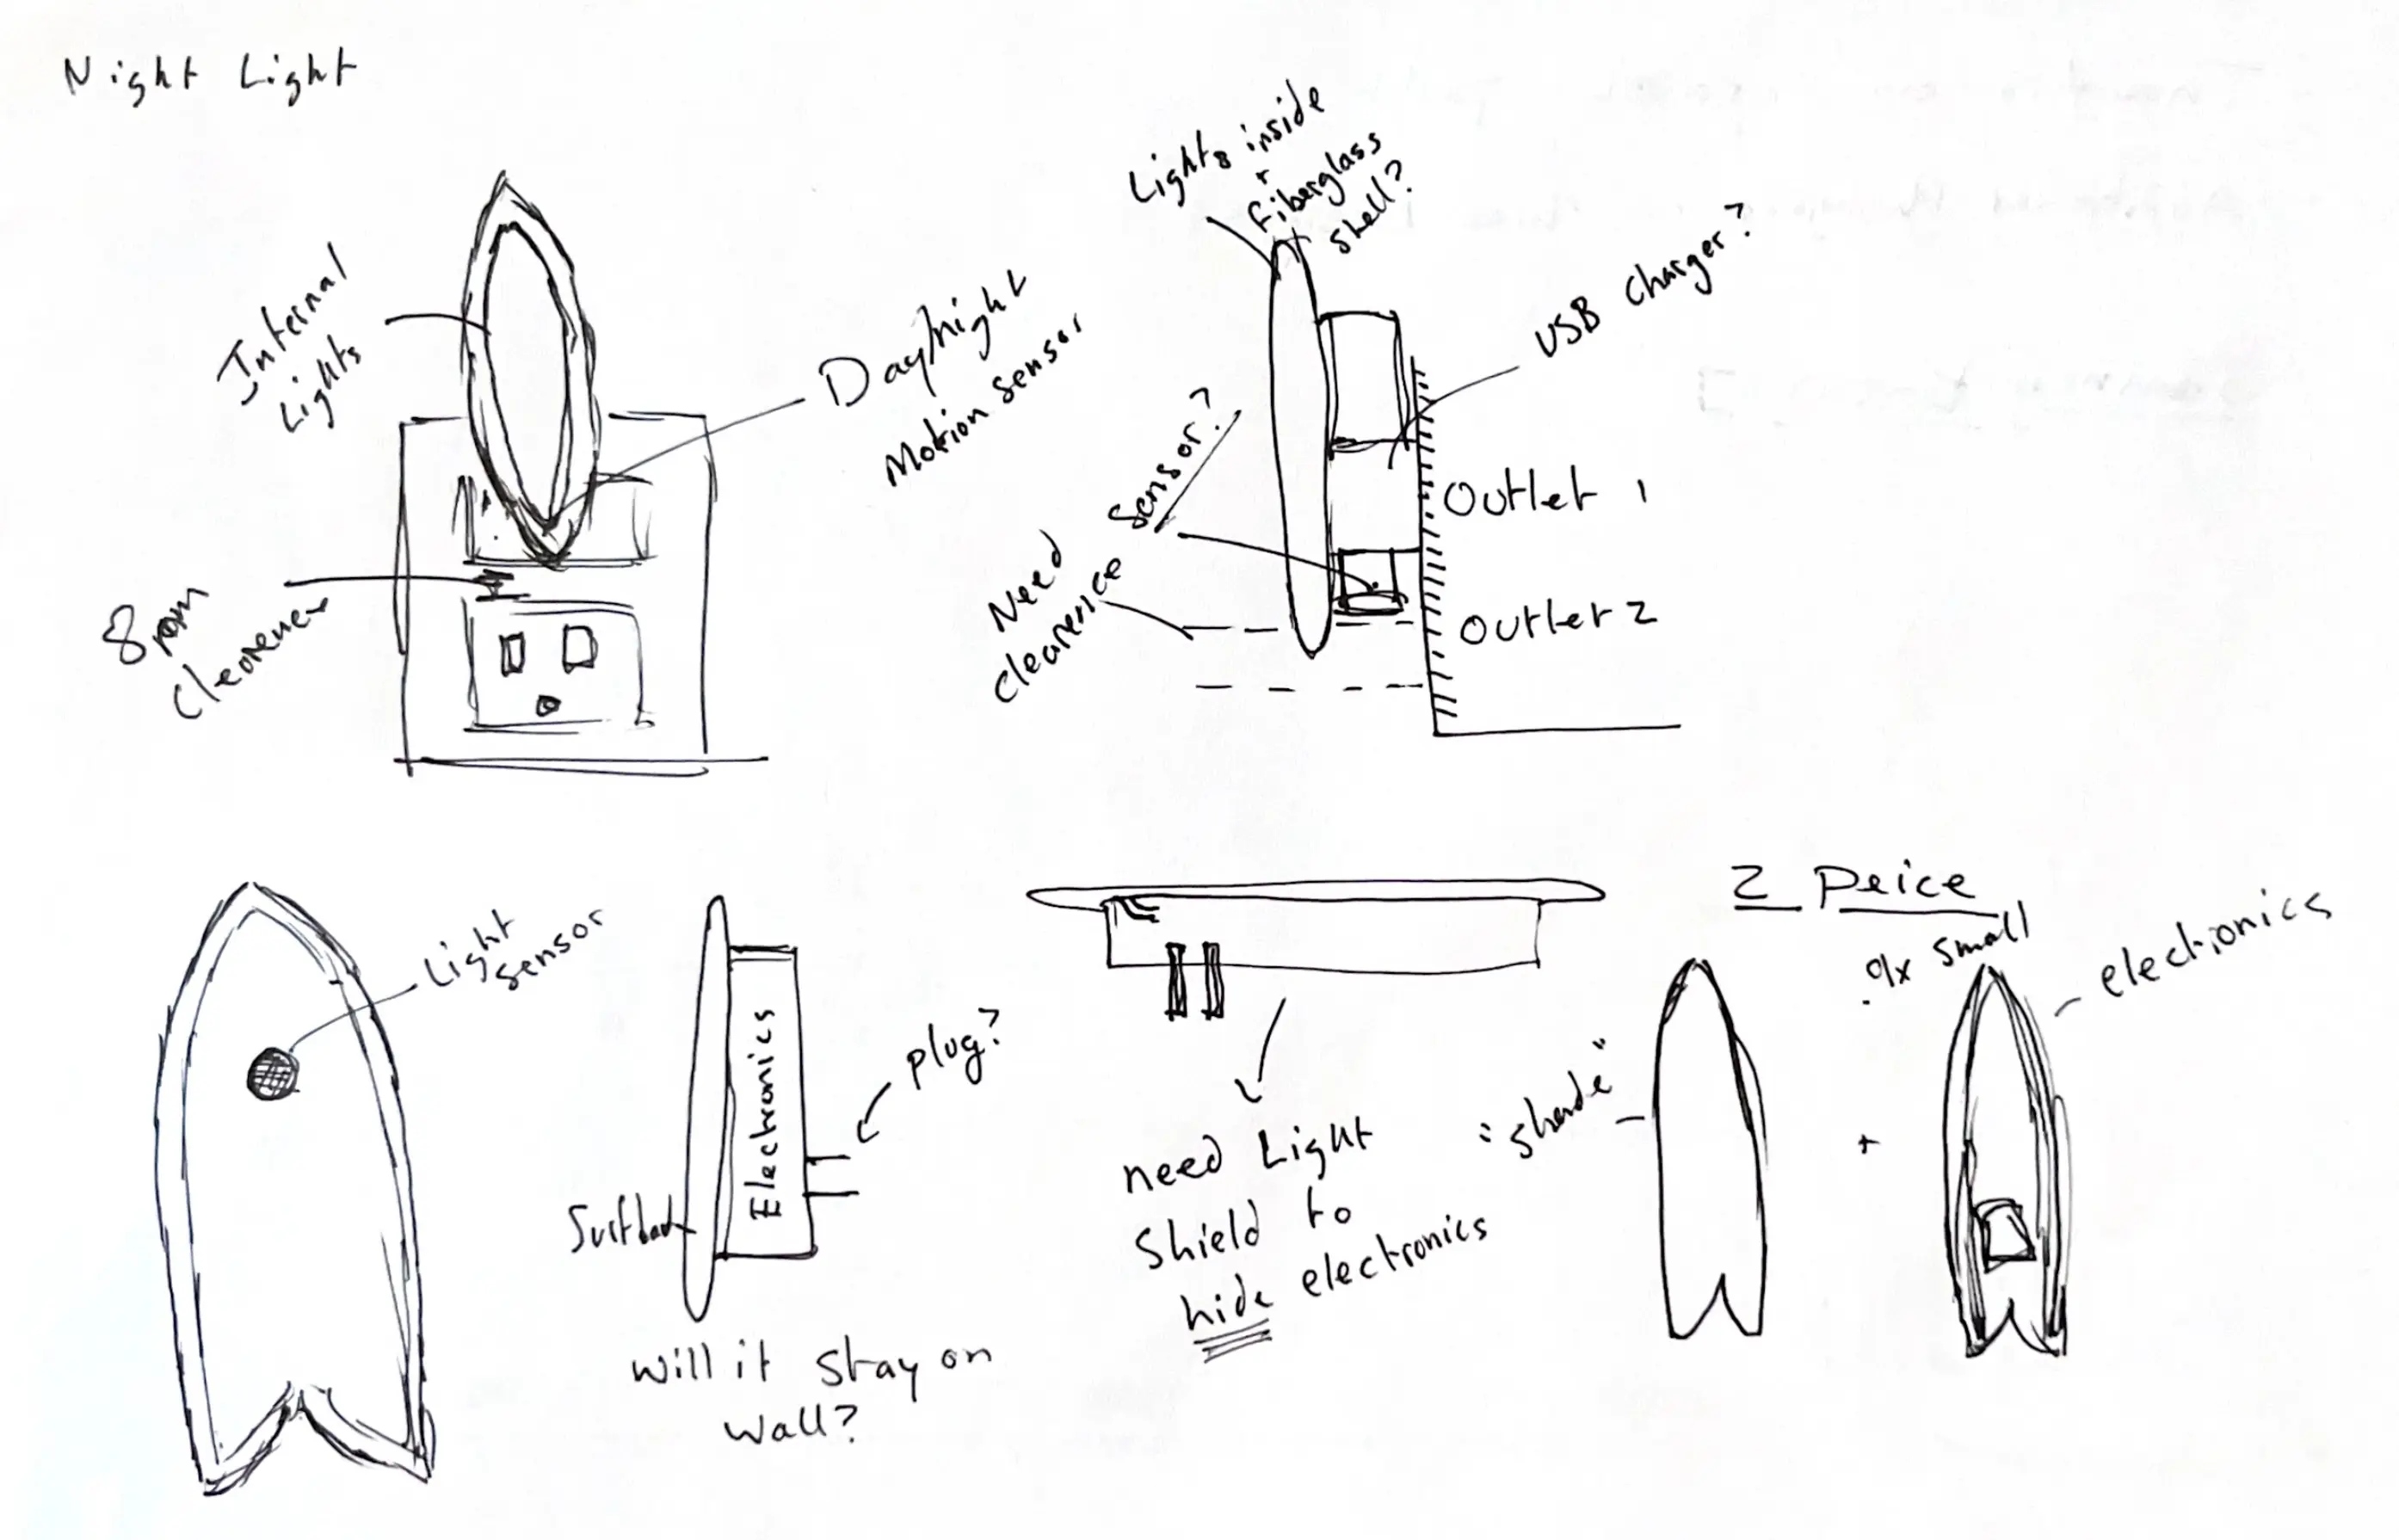 Night Light
Internal
Lights
Day/night
Motion sensor
8mm
Clearence
Lights inside
+
fiberglass
shell?
USB charger?
Sensor?
Need
clearence
Outlet 1
Outlet 2
Light
sensor
Electronics
plug?
Surfboard
will it stay on
wall?
need Light
Shield to
hide electronics
2 Peice
small
electronics
"shade"
+